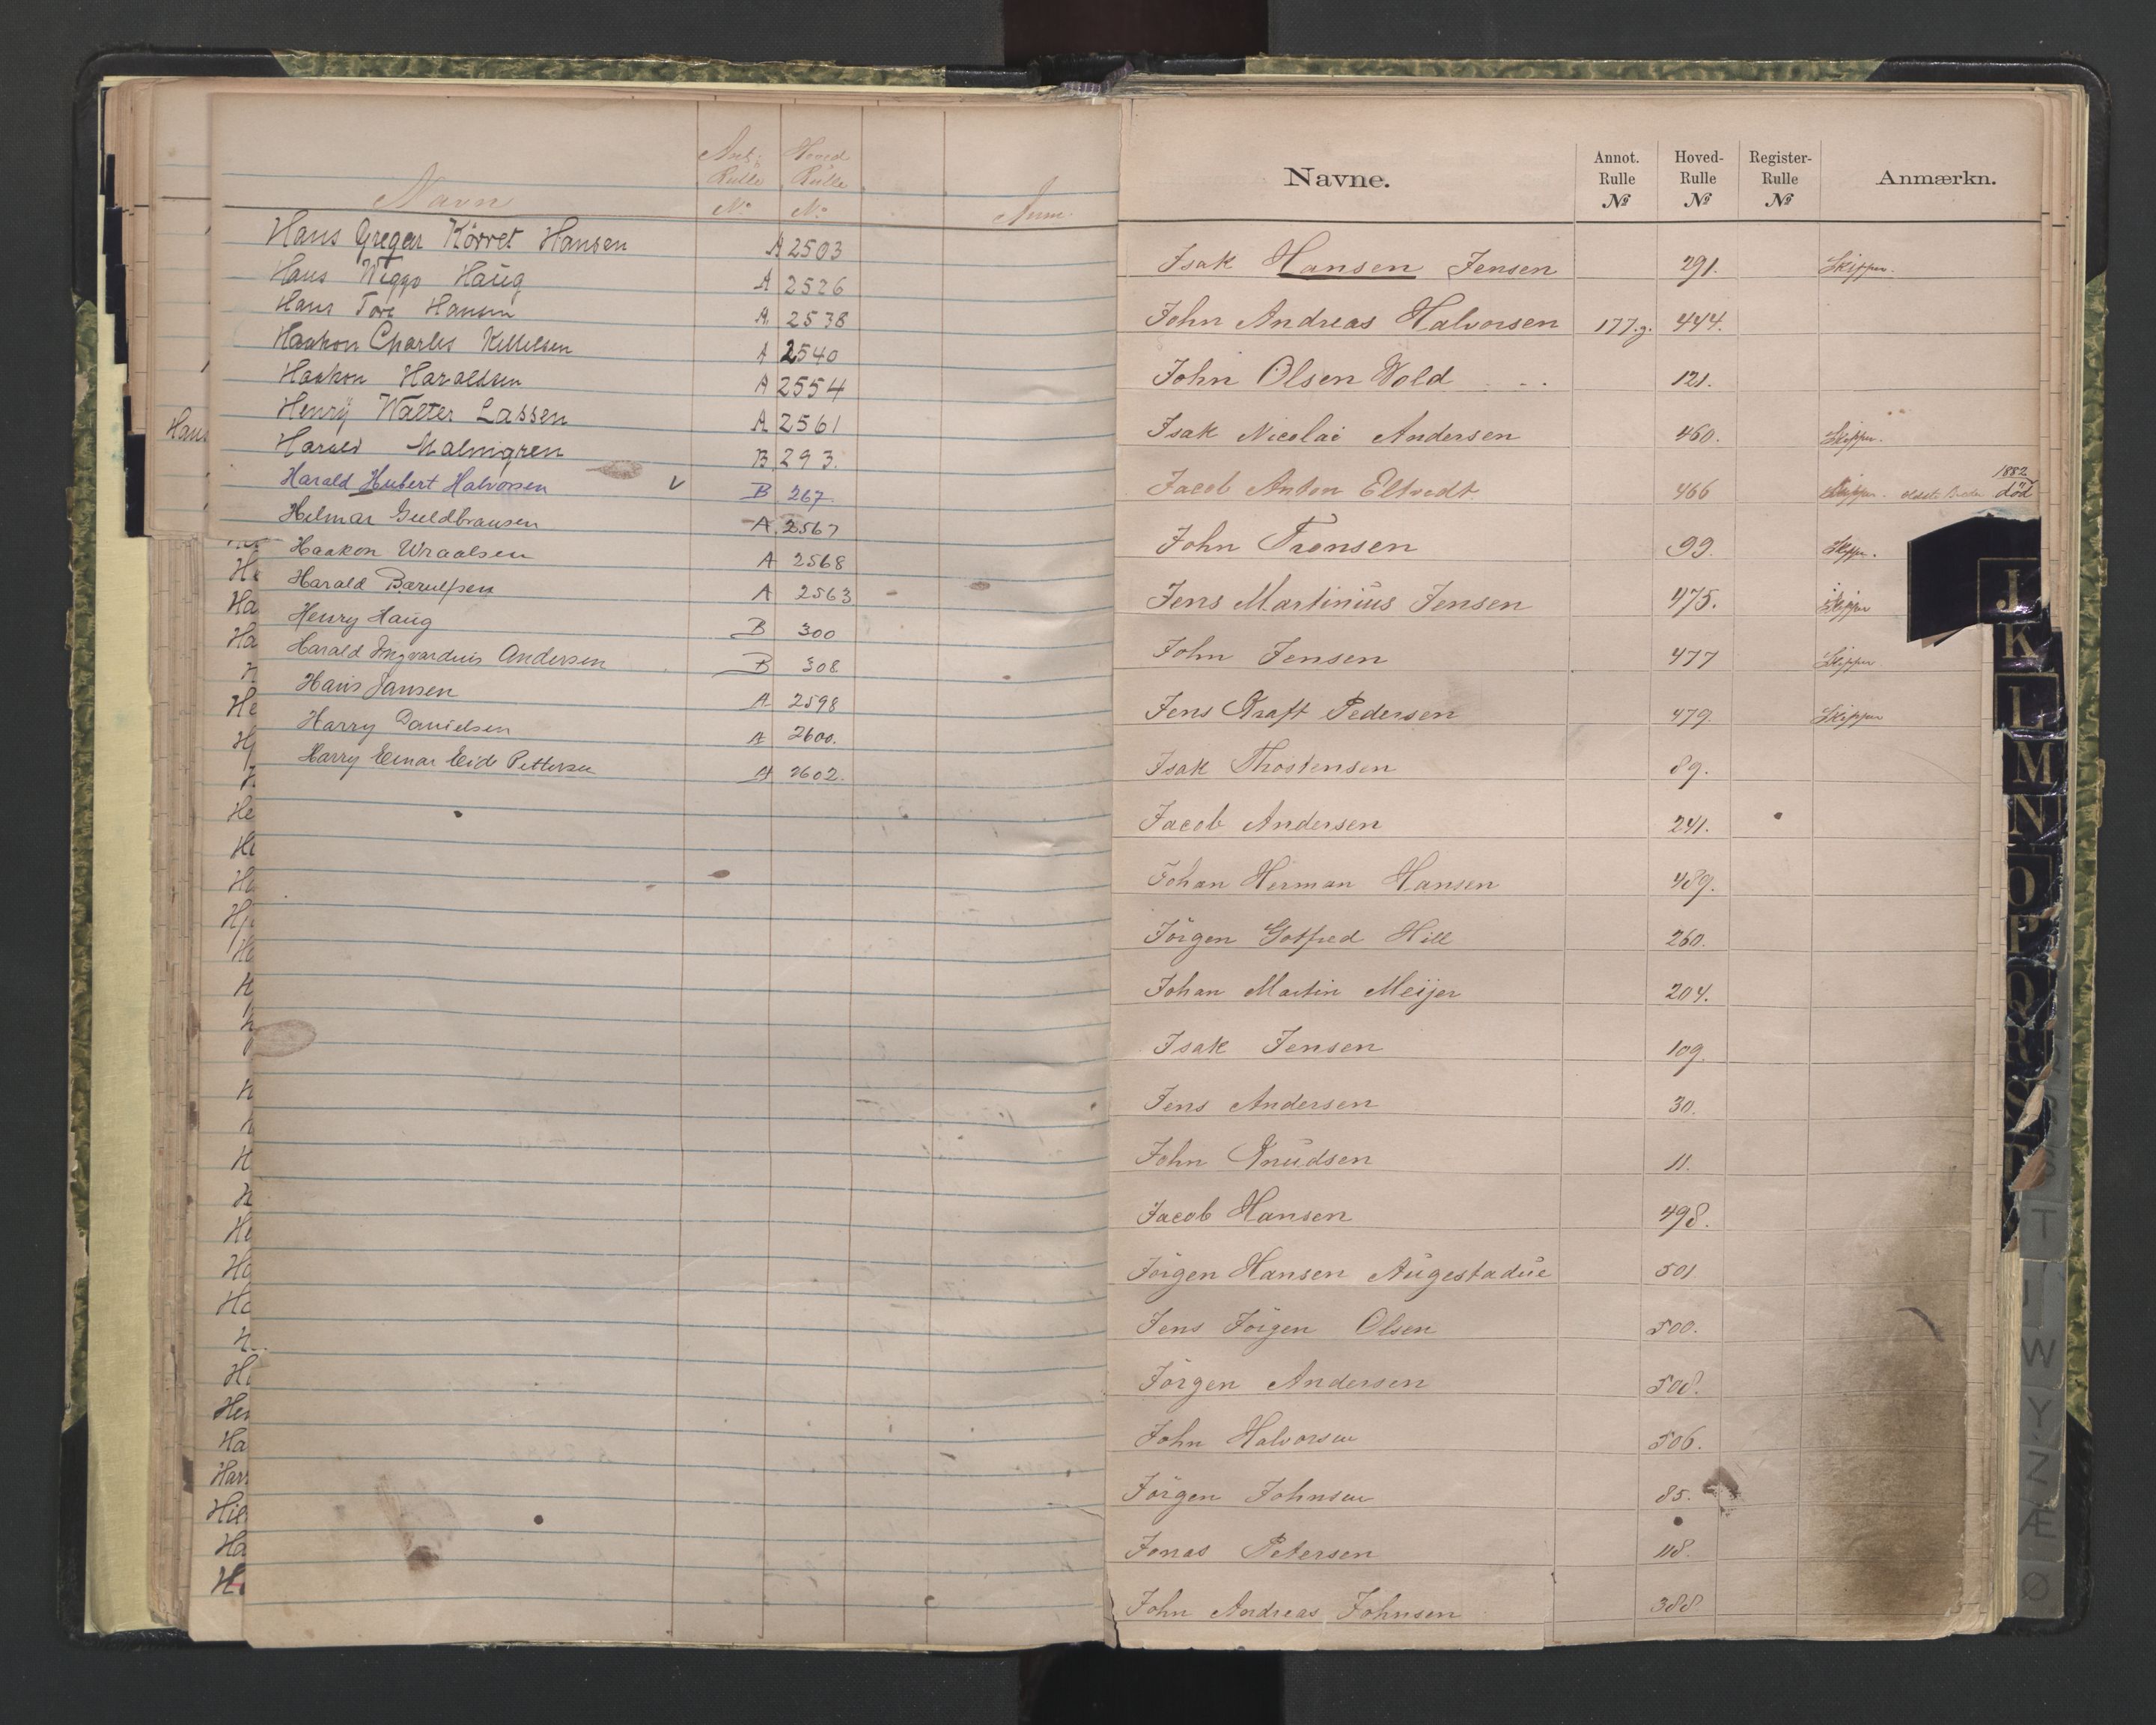 Navn Ant: Rulle No Hoved Rulle No Anm.
Hans Gregar Körret Hansen A 2503
Hans Wiggo Haug A 2526
Hans Tore Hansen A. 2538
Haakon Charles Kittelsen A 2540
Haakon Haraldsen A 2554
Henry Walter Lassen A 2561
Harald Malmgren B. 293.
Harald Hubert Halvorsen v B 267.
Hilmar Guldbrausen A. 2567
Haakon Wraalsen A 2568
Harald Barulfsen A 2563
Henry Haug B 300
Harald Ingvardius Andersen B 308
Hans Jansen A 2598
Harry Danielsen A 2600.
Harry Einar Eide Pettersen A 2602.
Hans
Navne. Annot. Rulle No Hoved-Rulle No Register-Rulle No Anmærkn.
Isak Hansen Jensen 291. Skipper.
John Andreas Halvorsen 177.g. 444.
John Olsen Vold 121.
Isak Nicolai Andersen 460. Skipper.
Jacob Anton Eltvedt 466 Skipper. 1882 död
John Tronsen 99. Skipper.
Jens Martinius Jensen 475. Skipper
John Jensen 477 Skipper
Jens Kraft Pedersen 479. Skipper
Isak Thostensen 89.
Jacob Andersen 241.
Johan Herman Hansen 489.
Jörgen Gotfred Hill 260.
Johan Martin Meijer 204.
Isak Jensen 109.
Jens Andersen 30.
John Knudsen 11.
Jacob Hansen 498.
Jörgen Hansen Augestadvie 501
Jens Jörgen Olsen 500.
Jörgen Andersen 508.
John Halvorsen 506.
Jörgen Johnsen 85.
Jonas Petersen 118.
John Andreas Johnsen 388
J
K
L
M
N
O
P
Q
R
S
T
W
Y
Z
Æ
Ø